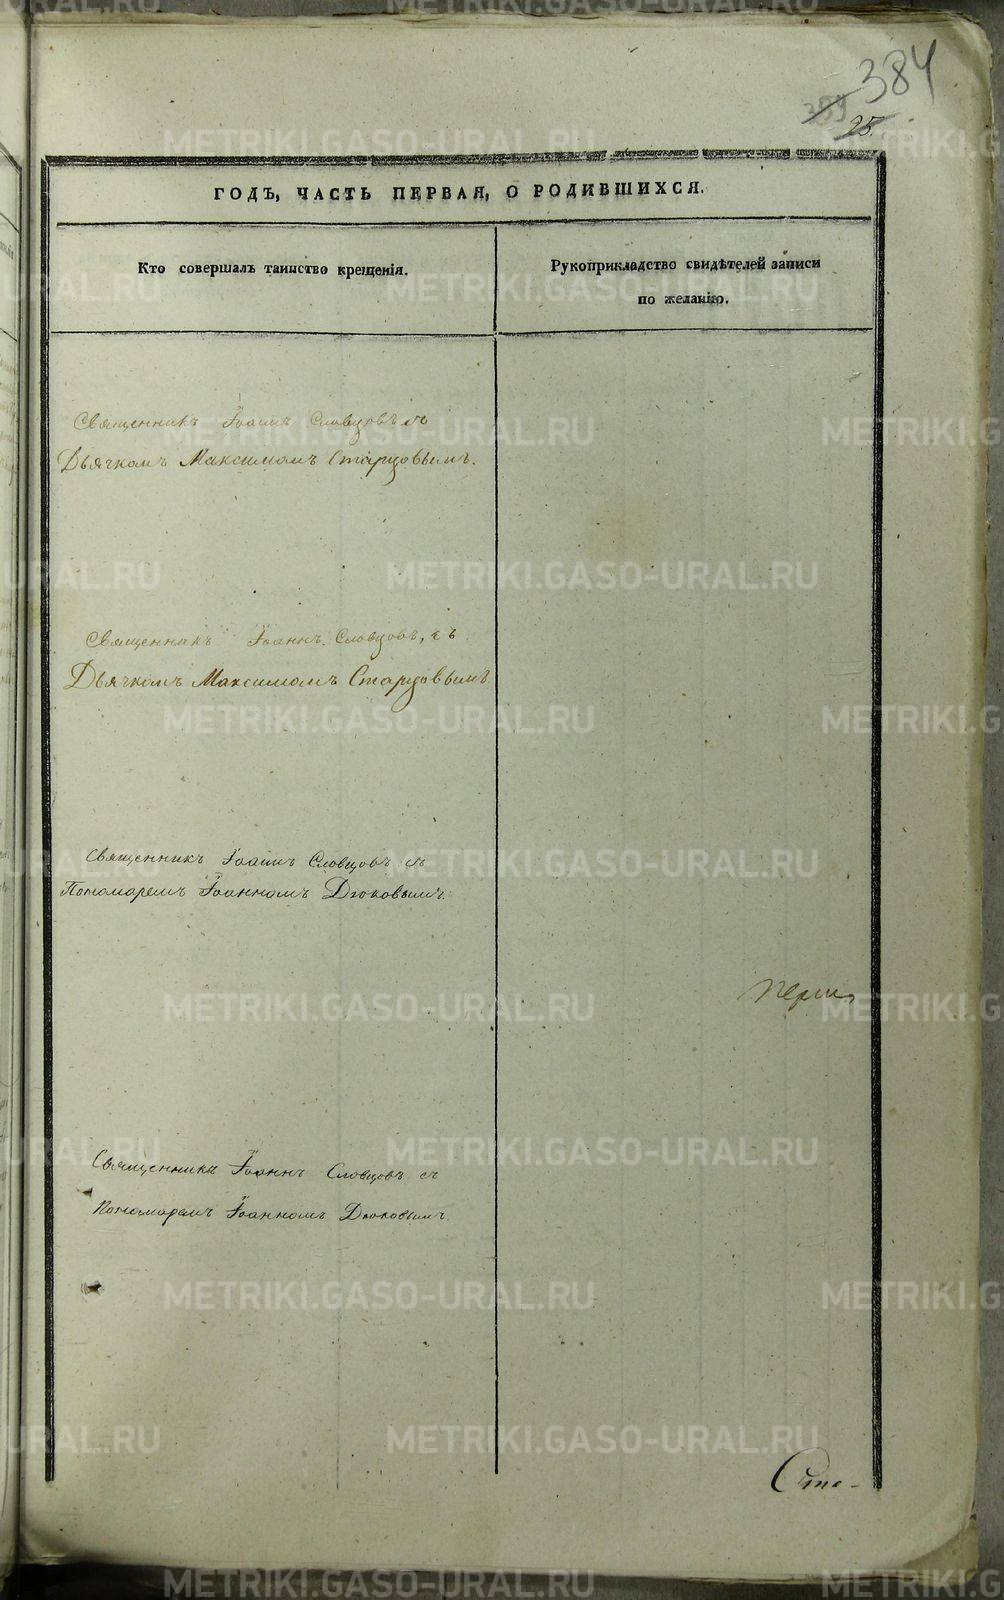 384
389
25.
ГОДЪ, ЧАСТЬ ПЕРВАЯ, О РОДИВШИХСЯ.
Кто совершалъ таинство крещенія.
Рукоприкладство свидѣтелей записи
по желанію.
Священникъ Іоаннъ Словцовъ съ
Дьячкомъ Максимомъ Старцовымъ.
Священникъ Іоаннъ Словцовъ, съ
Дьячкомъ Максимомъ Старцовымъ
Священникъ Іоаннъ Словцовъ съ
Пономаремъ Іоанномъ Дюковымъ.
Священникъ Іоаннъ Словцовъ съ
Пономаремъ Іоанномъ Дюковымъ.
METRIKI.GASO-URAL.RU